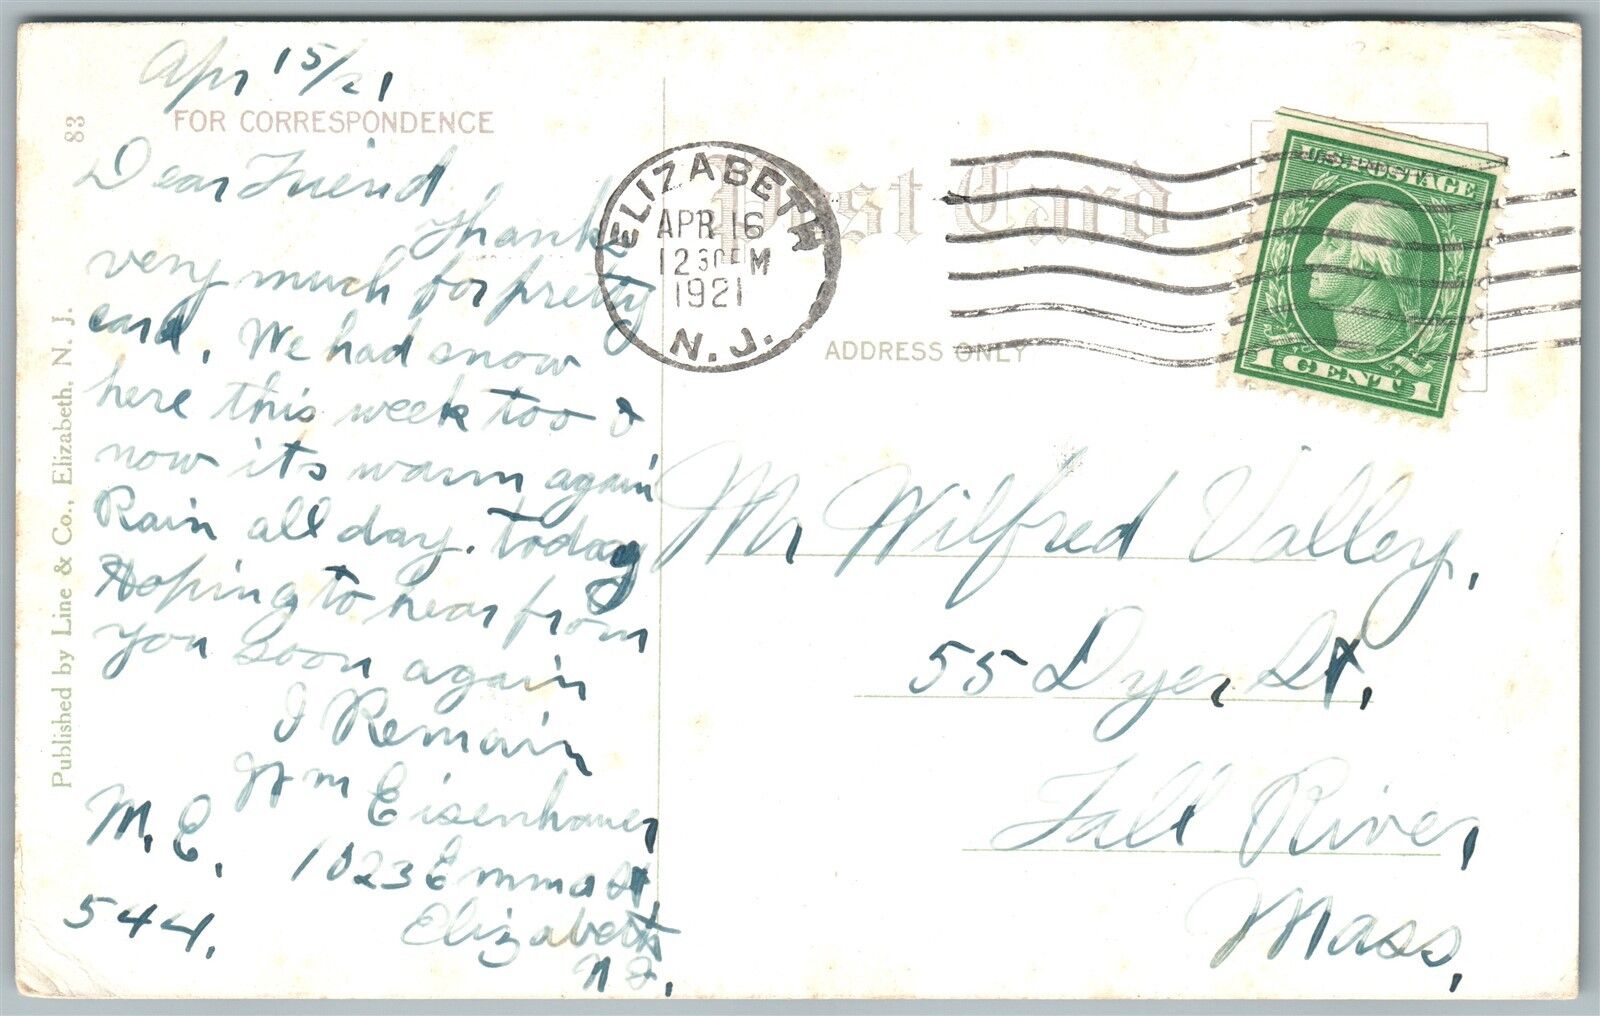 Apr 15/21
FOR CORRESPONDENCE
83
Published by Line & Co., Elizabeth, N. J.
Dear Friend
Thanks
very much for pretty
card. We had snow
here this week too &
now its warm again
Rain all day. today
Hoping to hear from
you soon again
I Remain
Wm Eisenhauer
M. C. 1023 Emma St
544. Elizabeth
N J.
Post Card
ELIZABETH
APR 16
12 30 PM
1921
N. J.
U.S. POSTAGE
1 CENT 1
ADDRESS ONLY
Mr Wilfred Valley,
55 Dyer St,
Fall River,
Mass,